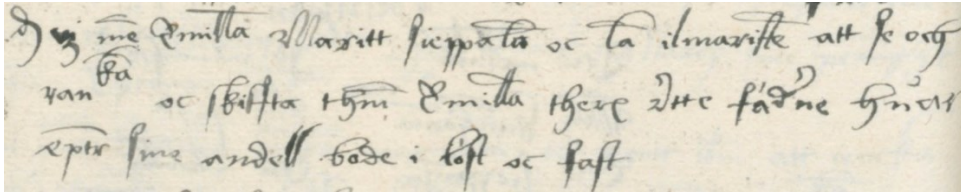 vj mē Emillā Maritt sieppalā oc lā ilmariste att se och
ran kā oc skiffta thm Emillā there rtte fäderne huar
epter sine andell bode i löst oc fast